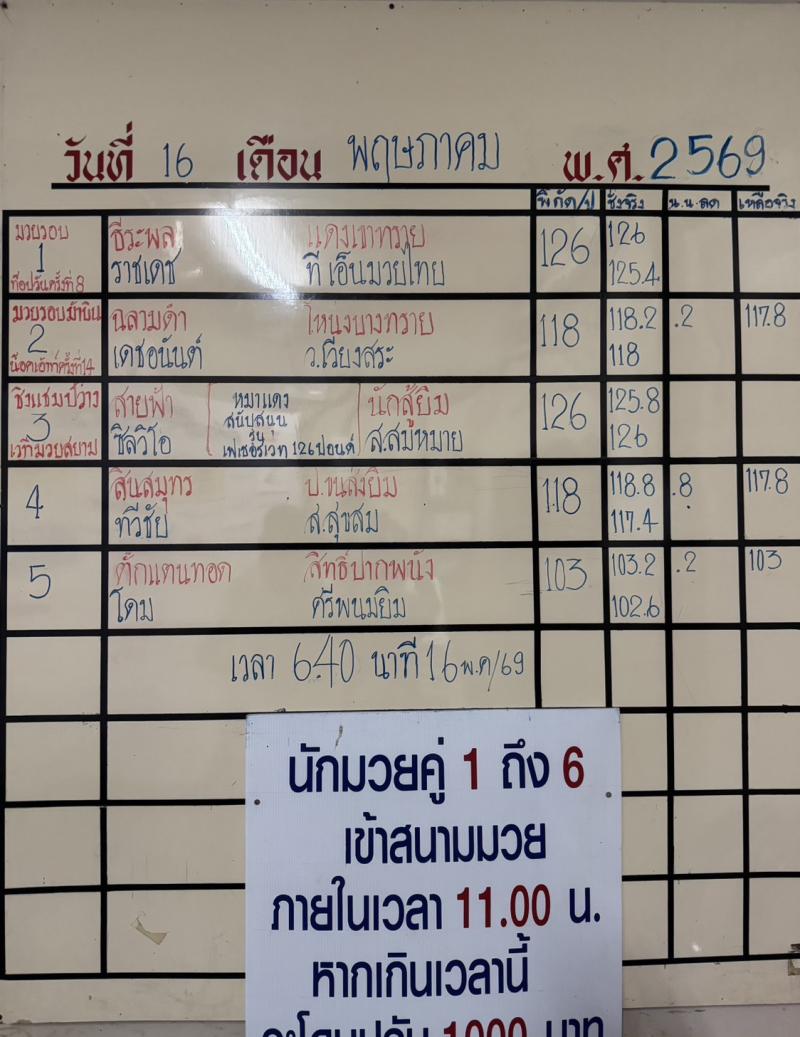 วันที่ 16 เดือน พฤษภาคม พ.ศ. 2569
พิกัด/ป ชั่งจริง น.น.ลด เหลือจริง
มวยรอบ ธีระพล แดงเขาทราย 126 126
1
ท๊อปวันครั้งที่ 8 ราชเดช ที เอ็นมวยไทย 125.4
มวยรอบม้าบิน ฉลามดำ โหนงบางทราย 118 118.2 .2 117.8
2
น็อคเอ้าท์ครั้งที่14 เดชอนันต์ ว.เวียงสระ 118
ชิงแชมป์ว่าง สายฟ้า หมาแดง นักสู้ยิม 126 125.8
3 สนับสนุน
รุ่น
เวทีมวยสยาม ซิลวิโอ เฟเธอร์เวท 126 ปอนด์ ส.สมหมาย 126
4 สินสมุทร ป.ขนส่งยิม 118 118.8 .8 117.8
ทวีชัย ส.สุขสม 117.4
5 ตั๊กแตนทอด สิทธิ์ปากพนัง 103 103.2 .2 103
โดม ศรีพนมยิม 102.6
เวลา 6.40 นาที 16 พ.ค/69
นักมวยคู่ 1 ถึง 6
เข้าสนามมวย
ภายในเวลา 11.00 น.
หากเกินเวลานี้
จะโดนปรับ 1000 บาท